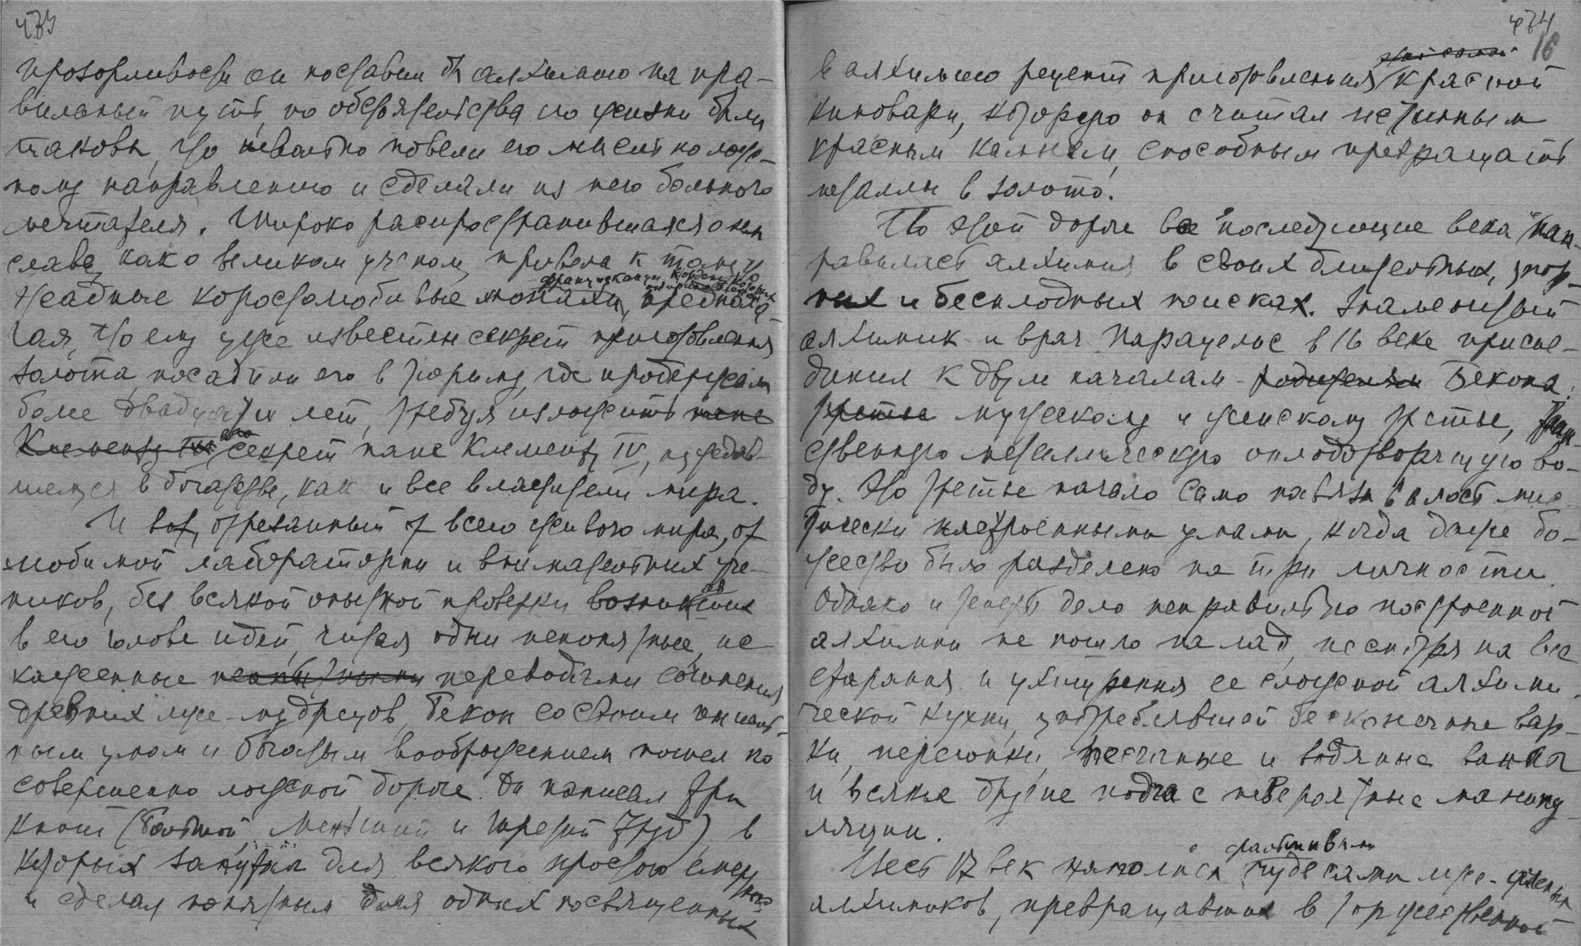 473
прозорливости он поставил бы алхимию на пра-
вильный путь, но обстоятельства его жизни были
таковы, что невольно повели его мысль по лож-
ному направлению и сделали из него больного
мечтателя. Широко распространившаяся о нем
слава, как о великом ученом, привела к тому, что
жадные корыстолюбивые монахи францисканцы,
гая, что ему уже известен секрет приготовления
золота, посадили его в тюрьму, где продержали
более двадцати лет, требуя изложить папе
Клементу IV его секрет папе Клименту IV, нуждав-
шемуся в богатстве, как и все властители мира.
И вот, отрезанный от всего живого мира, от
любимой лаборатории и внимательных уче-
ников, без всякой опытной проверки возникших
в его голове идей, читая одни непонятные, ис-
каженные переводами сочинения
древних лже-мудрецов, Бекон со своим гениаль-
ным умом и богатым воображением пошел по
совершенно ложной дороге. Он написал три
книги (Большой, Меньший и Третий труд), в
которых запутал для всякого простого смертного
и сделал понятным для одних посвященных
474
16
в алхимию рецепт приготовления красной
киновари, которую он считал истинным
красным камнем, способным превращать
металлы в золото.
По этой дороге все последующие века нап-
равилась алхимия в своих длительных, упор-
ных и бесплодных поисках. Знаменитый
алхимик и врач Парацельс в 16 веке присое-
динил к двум началам - родителям Бекона:
мужескому и женскому третье,
ственную металлическую оплодотворяющую во-
ду. Это третье начало само навязывалось мис-
тически настроенными умами, когда даже бо-
жество было разделено на три личности.
Однако и теперь дело неправильно построенной
алхимии не пошло на лад, несмотря на все
старания и ухищрения ее сложной алхими-
ческой кухни, употреблявшей бесконечные вар-
ки, перегонки, песчаные и водяные ванны
и всякие другие подчас невероятные манипу-
ляции.
Весь 17 век наполнен чудесами лже-ученых
алхимиков, превращавших в торжественной